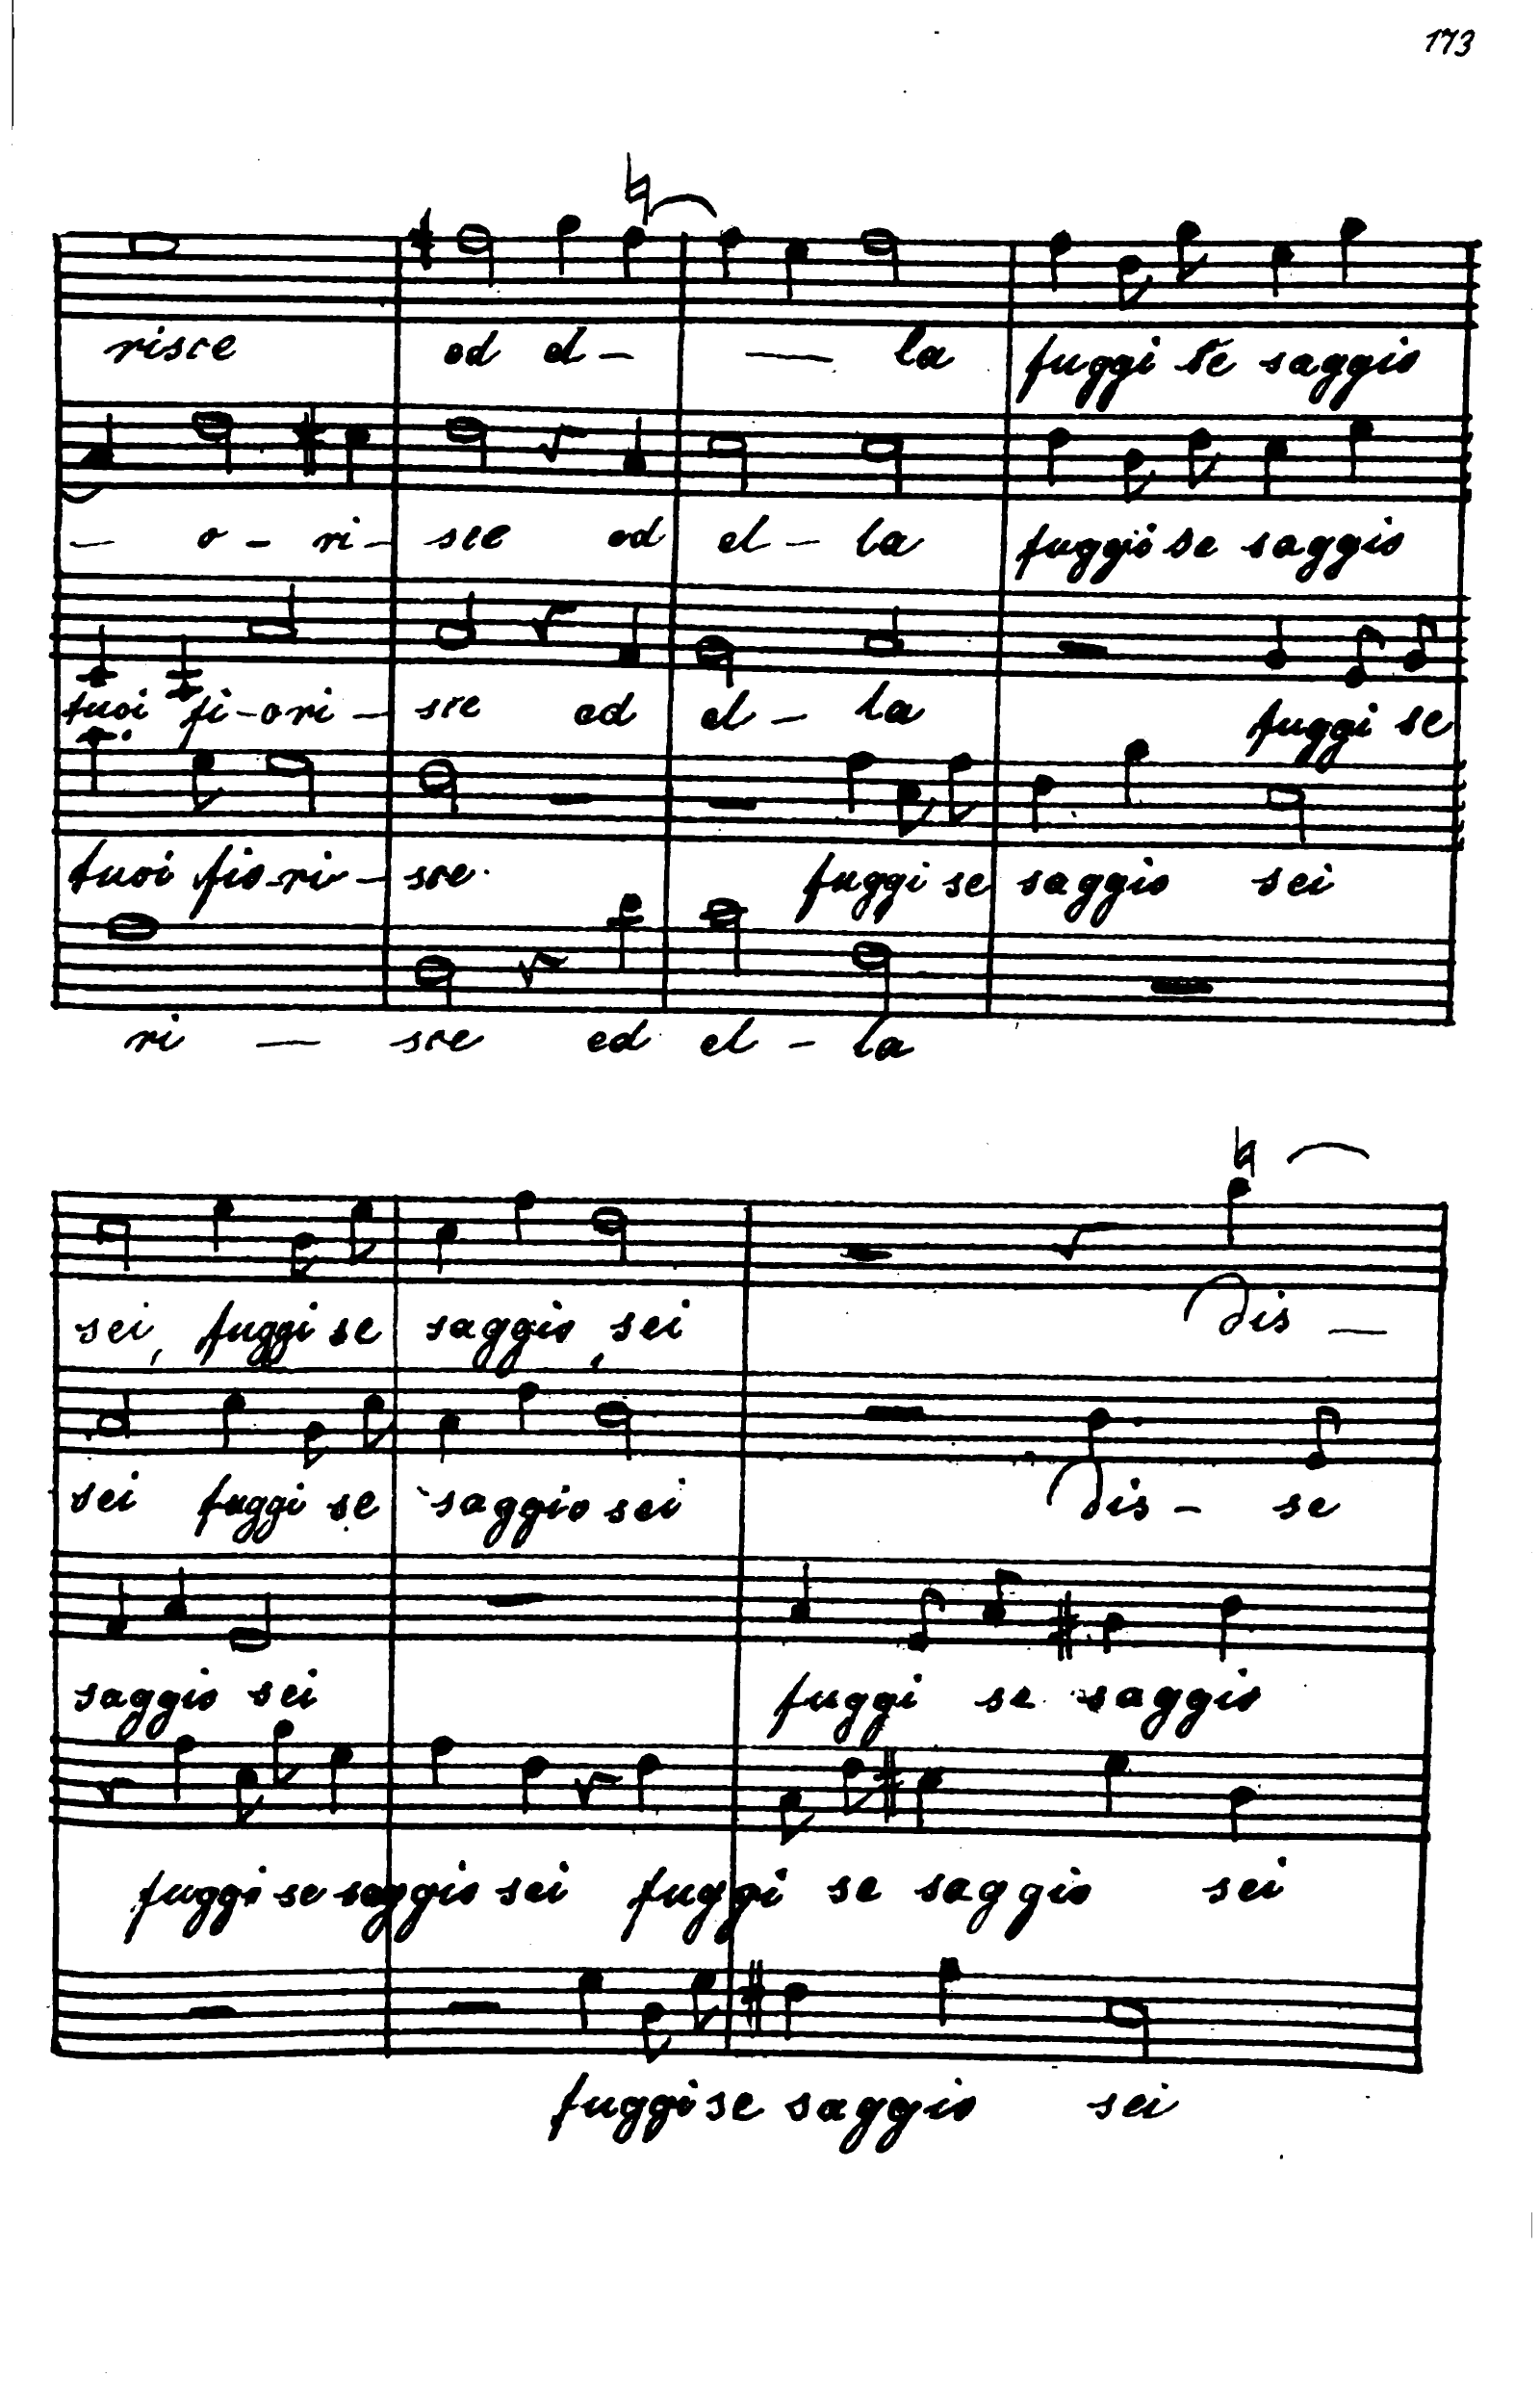 173
risce ed el - — la fuggi se saggio
— o - ri - sce ed el - la fuggi se saggio
tuoi fi - o ri - sce ed el - la fuggi se
tuoi fio - ri - sce. fuggi se saggio sei
ri — sce ed el - la
sei, fuggi se saggio, sei Dis —
sei fuggi se saggio sei Dis - se
saggio sei fuggi se saggio
fuggi se saggio sei fuggi se saggio sei
fuggi se saggio sei